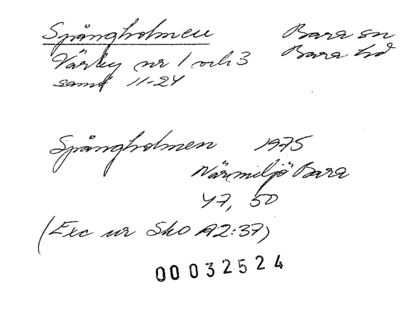 Spångholmen Bara sn
Värby nr 1 och 3 Bara hd
samt 11-24
Spångholmen 1975
Närmiljö Bara
47, 50
(Exc ur SkO A2:37)
00032524